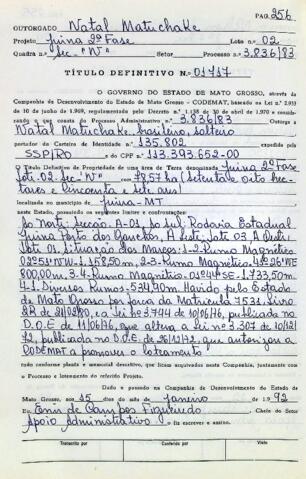 PAG. 256
OUTORGADO Natal Matuchake
Projeto Juina 2ª Fase Lote n.o 02
Quadra n.o Sec. "N" Setor Processo n.o 3.836/83
TÍTULO DEFINITIVO N.o 01717
O GOVERNO DO ESTADO DE MATO GROSSO, através da
Companhia de Desenvolvimento do Estado de Mato Grosso - CODEMAT, baseado na Lei n.o 2.933
de 10 de junho de 1969, regulamentado pelo Decreto n.o 1.138 de 30 de abril de 1970 e considerando
o que consta do Processo Administrativo n.o 3.836/83 Outorga a
Natal Matuchake, brasileiro, solteiro
portador da Carteira de Identidade n.o 135.802
SSP/RO e do CPF n.o 113.393.652-00
Título Definitivo de Propriedade de uma área de Terra denominada Juina 2ª Fase
Lote. 02 - Sec. "N" 78,57 ha (setenta e oito hec-
tares e cincoenta e sete ares)
localizada no município de Juina-MT
neste Estado, possuindo os seguintes limites e confrontações:
Ao Norte: Secção. A-01, Ao Sul: Rodovia Estadual
Juina Porto dos Gauchos, A Leste: Lote 03, A Oeste:
Lote 01. Situação dos Marcos: 1-2 Rumo Magnético
800,00m, 3-4. Rumo Magnético
4-1. Diversos Rumos - Havido pelo Estado
de Mato Grosso por força da Matricula livro
2R de 21/02/80, a Lei n.o 3.744 de 10/06/76, publicada no
D.O.E. de 11/06/76, que altera a Lei n.o 3.307 de 10/12/
72, publicada no D.O.E. de 26/12/72, que autorizou a
CODEMAT a promover o loteamento
tudo conforme planta e memorial descritivo, que ficam arquivados nesta Companhia, juntamente com
o Processo e loteamento do referido Projeto.
Dado e passado na Companhia de Desenvolvimento do Estado de
Mato Grosso, aos 15 dias do mês de janeiro de 1992
Eu, Enir de Campos Figueiredo Chefe do Setor
Apoio administrativo o fiz escrever e assino.
Transcrito por Conferido por Visto